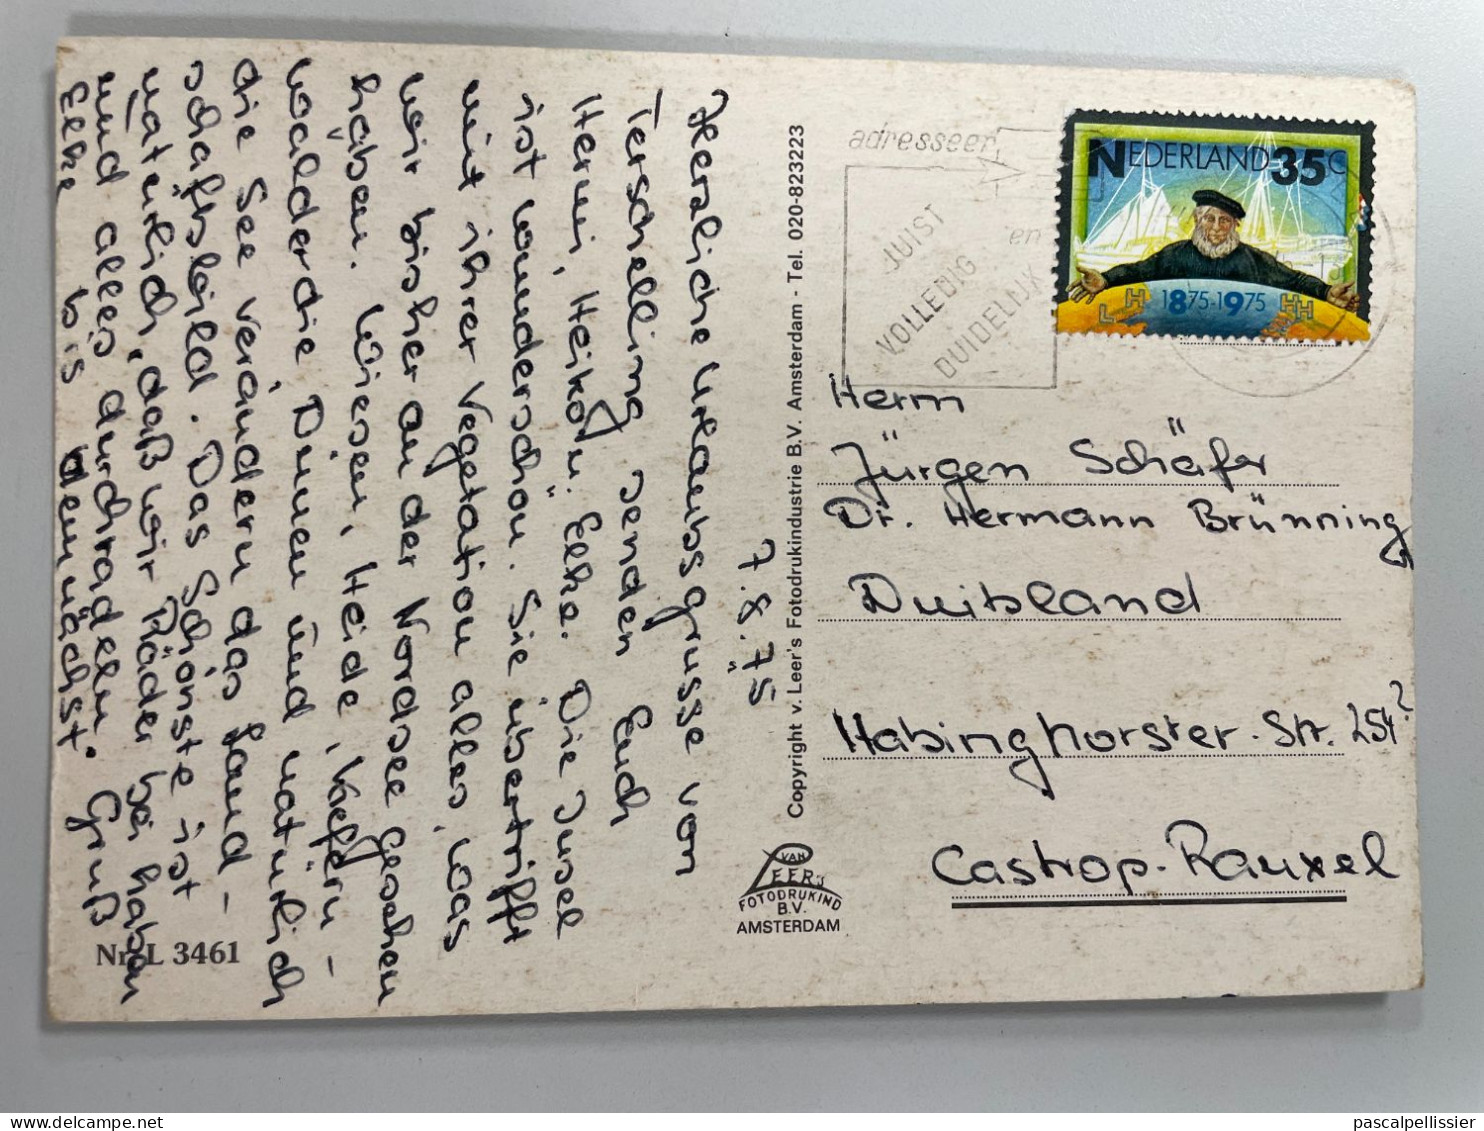 7.8.75
Herzliche Urlaubsgrüsse von
Terschelling senden Euch
Hermi, Heiko u. Elke. Die Insel
ist wunderschön. Sie übertrifft
mit ihrer Vegetation alles, was
wir bisher an der Nordsee gesehen
haben. Wiesen, Heide, Kiefern-
wälder die Dünen und natürlich
die See verändern das Land-
schaftsbild. Das Schönste ist
natürlich, daß wir Räder bei haben
und alles durchradeln. Gruß
Elke bis demnächst.
Nr. L 3461
Copyright v. Leer's Fotodrukindustrie B.V. Amsterdam - Tel. 020-823223
VAN
LEER'S
FOTODRUKIND
B.V.
AMSTERDAM
adresseer
JUIST
VOLLEDIG
en
DUIDELIJK
NEDERLAND 35c
LHHHH
1875-1975
Herrn
Jürgen Schäfer
Dr. Hermann Brünning
Duitsland
Habinghorster-Str. 254?
Castrop-Rauxel
pascalpellissier